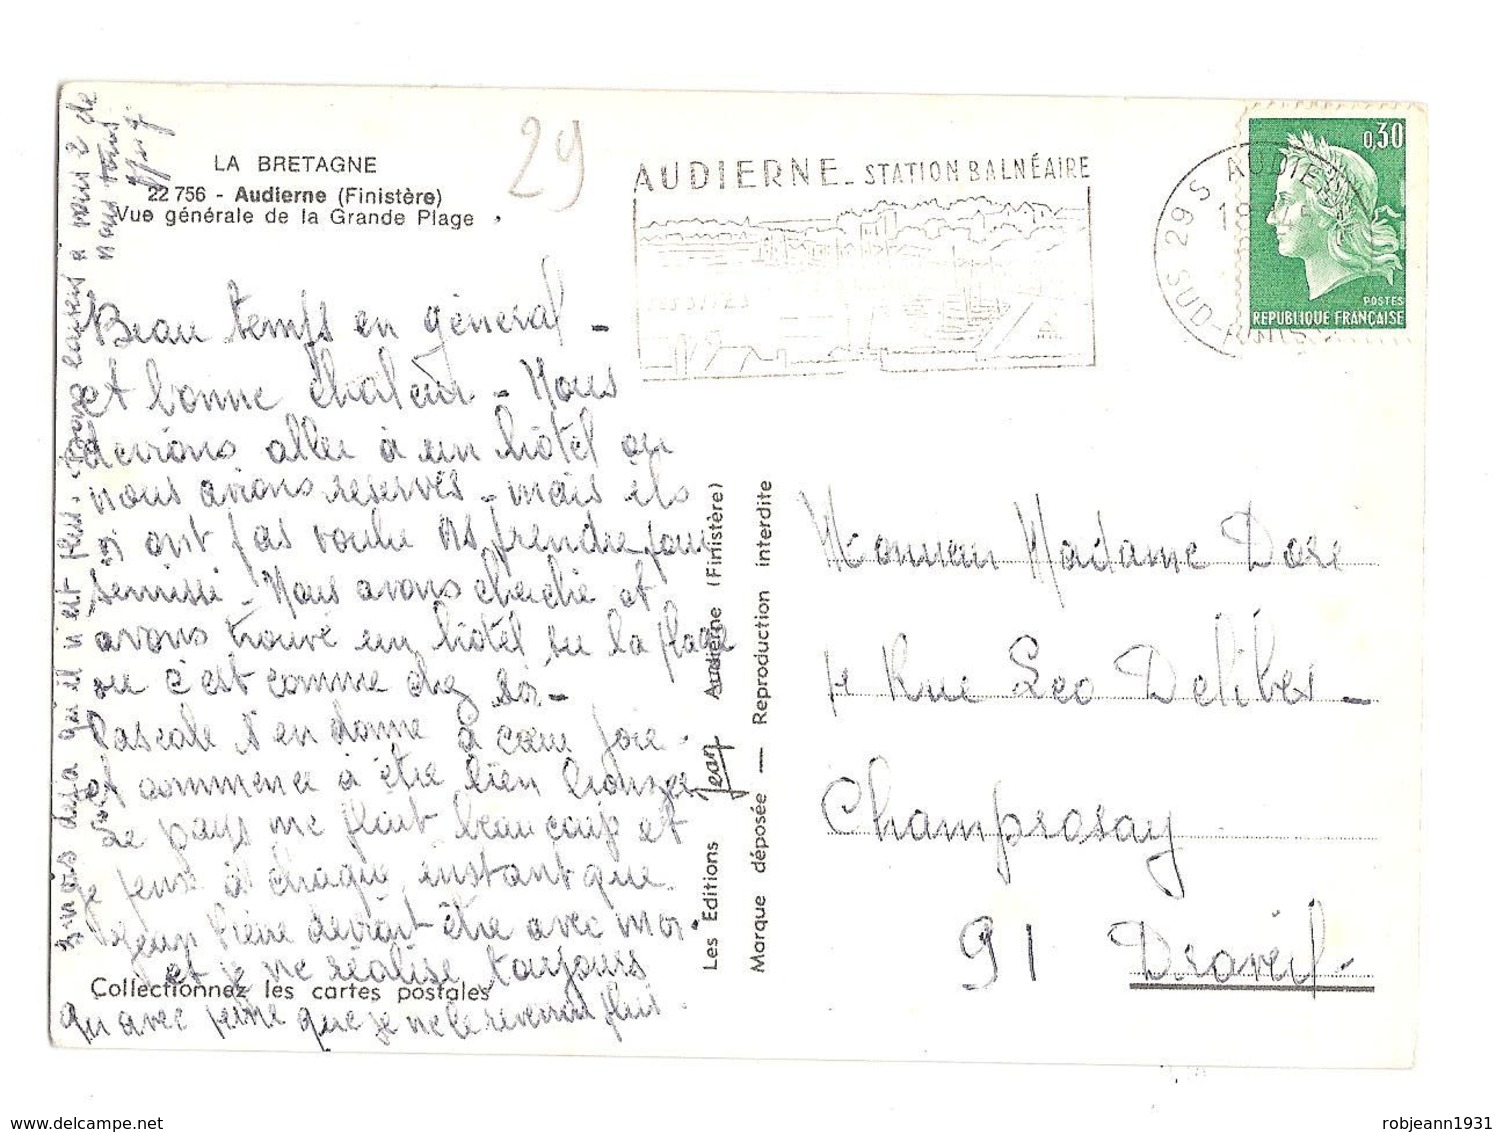 LA BRETAGNE
22 756 - Audierne (Finistère)
Vue générale de la Grande Plage
29
AUDIERNE - STATION BALNÉAIRE
29 S AUDIERNE
SUD-FINIS
18
0,30
POSTES
REPUBLIQUE FRANÇAISE
Beau temps en général -
et bonne chaleur - Nous
devions aller à un hôtel ou
nous avions reservés - mais ils
n ont pas voulu ns prendre pour
Nous avons cherché et
avons trouvé un hôtel su la plage
ou c'est comme chez soi -
Pascale s'en donne à cœur joie -
et commence à être bien bronzée
Le pays me plait beaucoup et
je pense à chaque instant que
Jean Pierre devrait être avec moi.
et je ne réalise toujours
qu avec peine que je ne le reverrai plus.
3 mois déja qu il n est plus. Bons baisers à vous 2 de
nous tous.
Collectionnez les cartes postales
Les Editions Jean Audierne (Finistère)
Marque déposée — Reproduction interdite
Monsieur Madame Dore
Rue Leo Delibes -
Champrosay
91 Draveil -
www.delcampe.net
robjeann1931